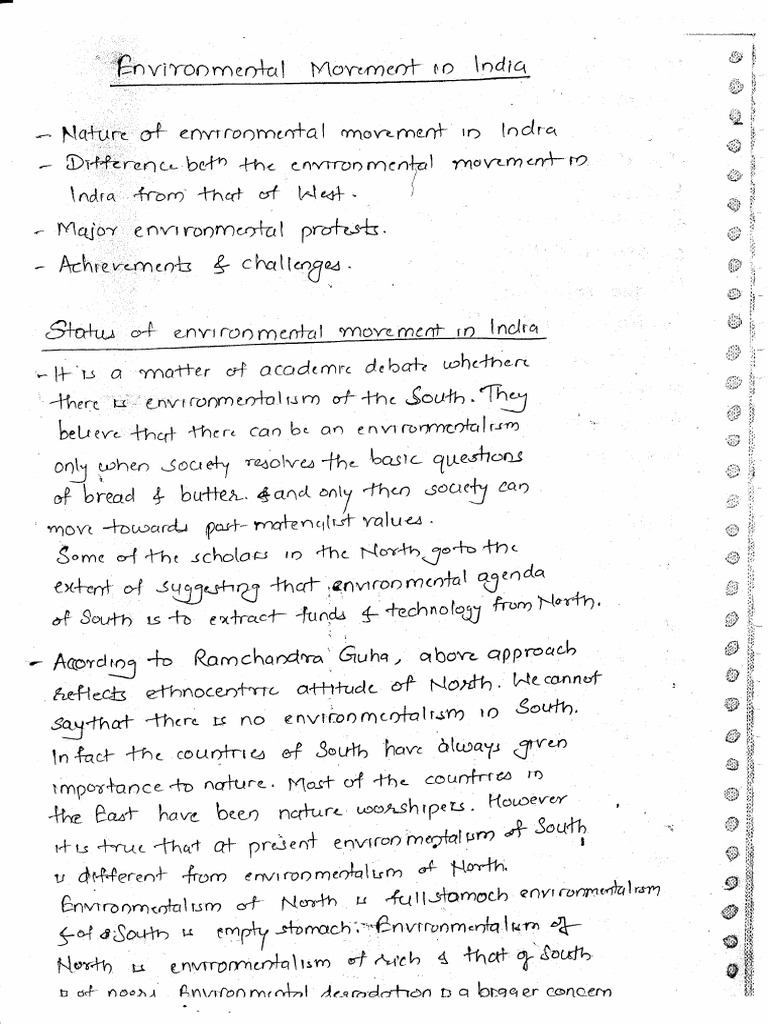 Environmental Movement in India
- Nature of environmental movement in India
- Difference betn the environmental movement in
India from that of West.
- Major environmental protests.
- Achievements & challenges.
Status of environmental movement in India
- It is a matter of academic debate whethere
there is environmentalism of the South. They
believe that there can be an environmentalism
only when society resolves the basic questions
of bread & butter. & and only then society can
move towards post-materialist values.
Some of the scholars in the North go to the
extent of suggesting that environmental agenda
of South is to extract funds & technology from North.
- According to Ramchandra Guha, above approach
reflects ethnocentric attitude of North. We cannot
say that there is no environmentalism in South.
In fact the countries of South have always given
importance to nature. Most of the countries in
the East have been nature worshipers. However
it is true that at present environmentalism of South
is different from environmentalism of North.
Environmentalism of North is full stamoch environmentalism
& of South is empty stomach. Environmentalism of
North is environmentalism of rich & that of South
is of poors. Environmental degradation is a bigger concern